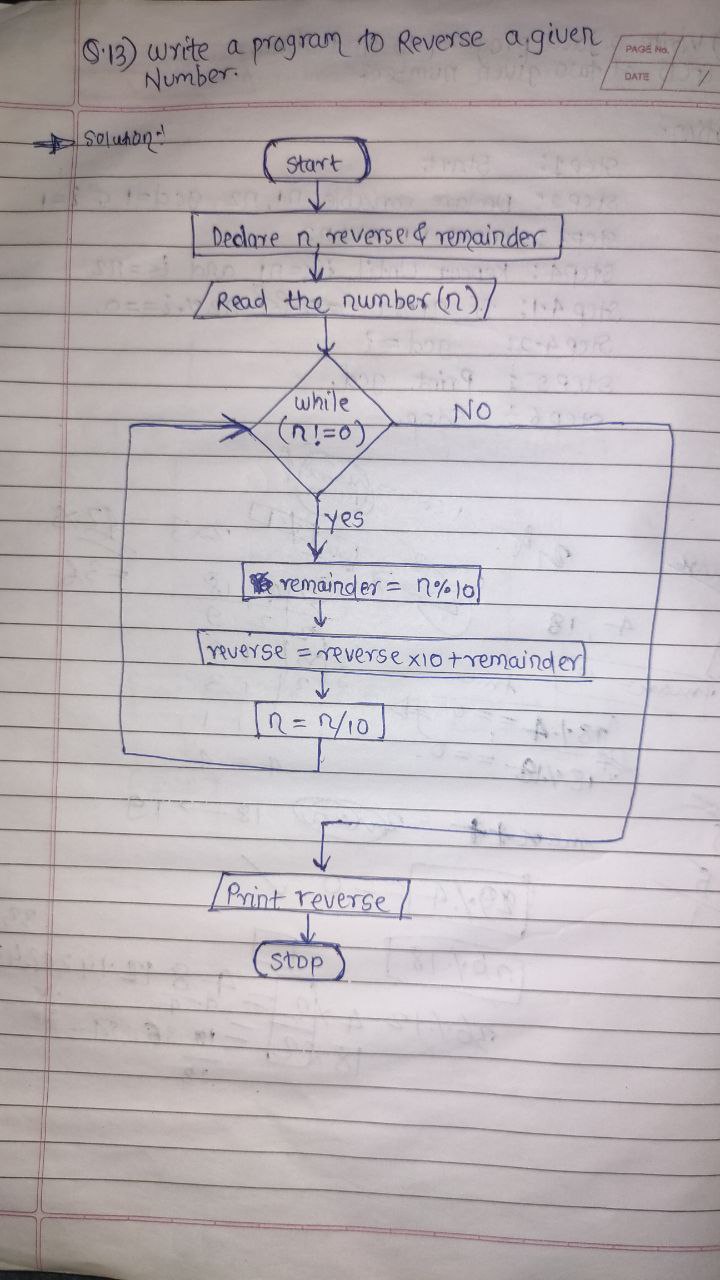 Q.13) Write a program to Reverse a given
Number.
PAGE No.
DATE
Solution:
Start
Declare n, reverse & remainder
Read the number (n)
while
(n!=0)
NO
yes
remainder = n%10
reverse = reverse x10 + remainder
n = n/10
Print reverse
Stop